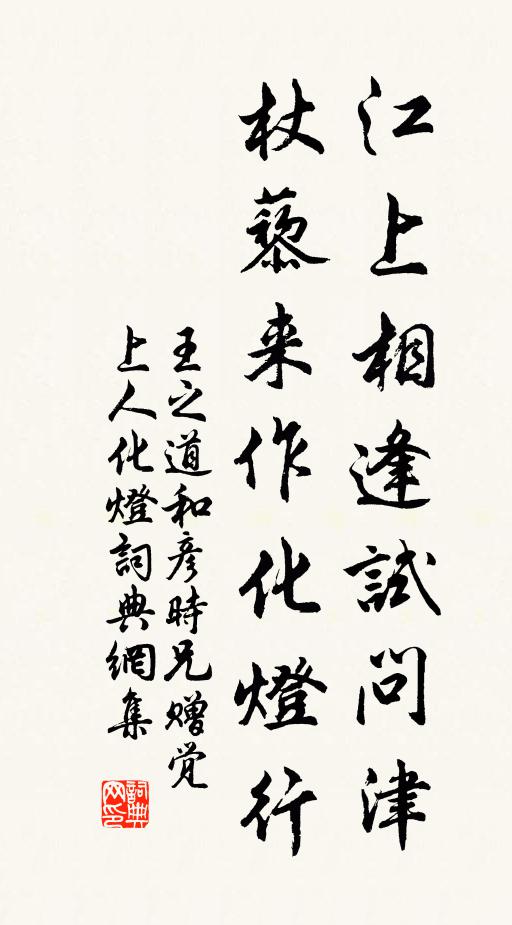 江上相逢試问津
杖藜来作化燈行
王之道和彦時兄赠觉
上人化燈詞典網集
詞典网印